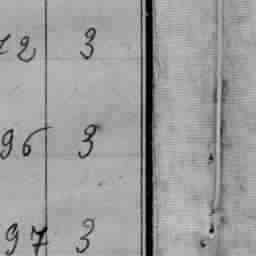 72 3
96 3
97 3